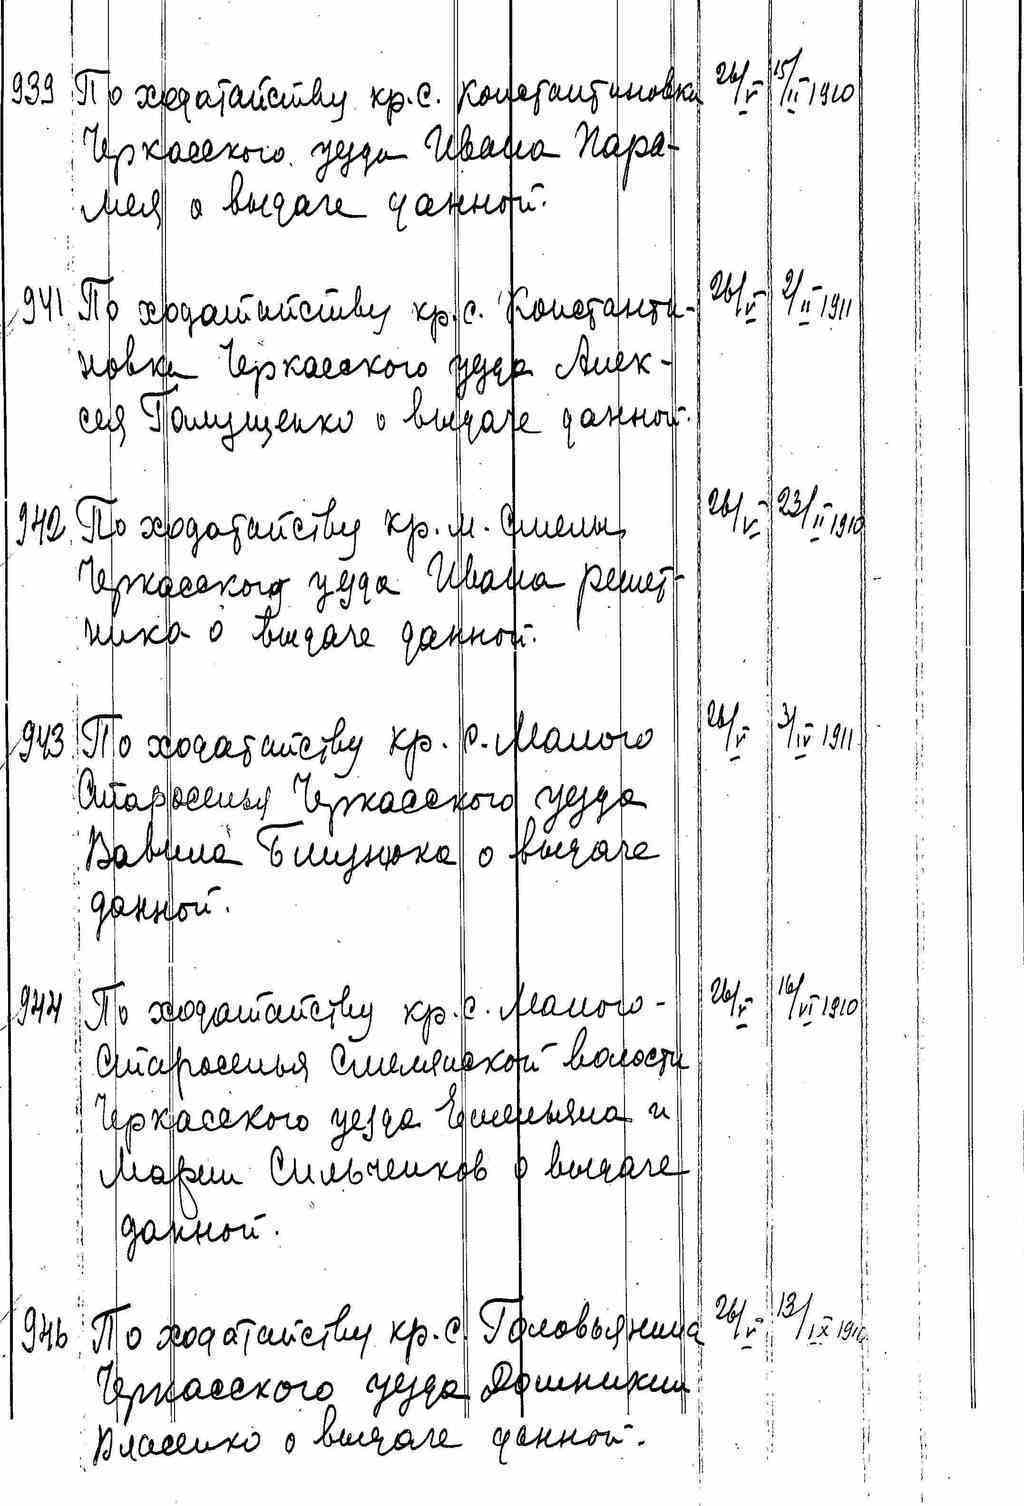 939 По ходатайству кр. с. Константиновки 26/V 15/II 1910
Черкасского уезда Ивана Пара-
мея о выдаче данной.
941 По ходатайству кр. с. Константи- 26/V 2/II 1911
новки Черкасского уезда Алек-
сея Галущенко о выдаче данной.
942 По ходатайству кр. м. Смелы 26/V 23/II 1910
Черкасского уезда Ивана решет-
ника о выдаче данной.
943 По ходатайству кр. с. Малого 26/V 3/IV 1911
Староселья Черкасского уезда
Вавила о выдаче
данной.
944 По ходатайству кр. с. Малого- 26/V 16/VI 1910
Староселья Смелянской волости
Черкасского уезда Емельяна и
Марии Сильченков о выдаче
данной.
946 По ходатайству кр. с. Головьятина 26/V 13/IX 1910
Черкасского уезда Домникии
Власенко о выдаче данной.